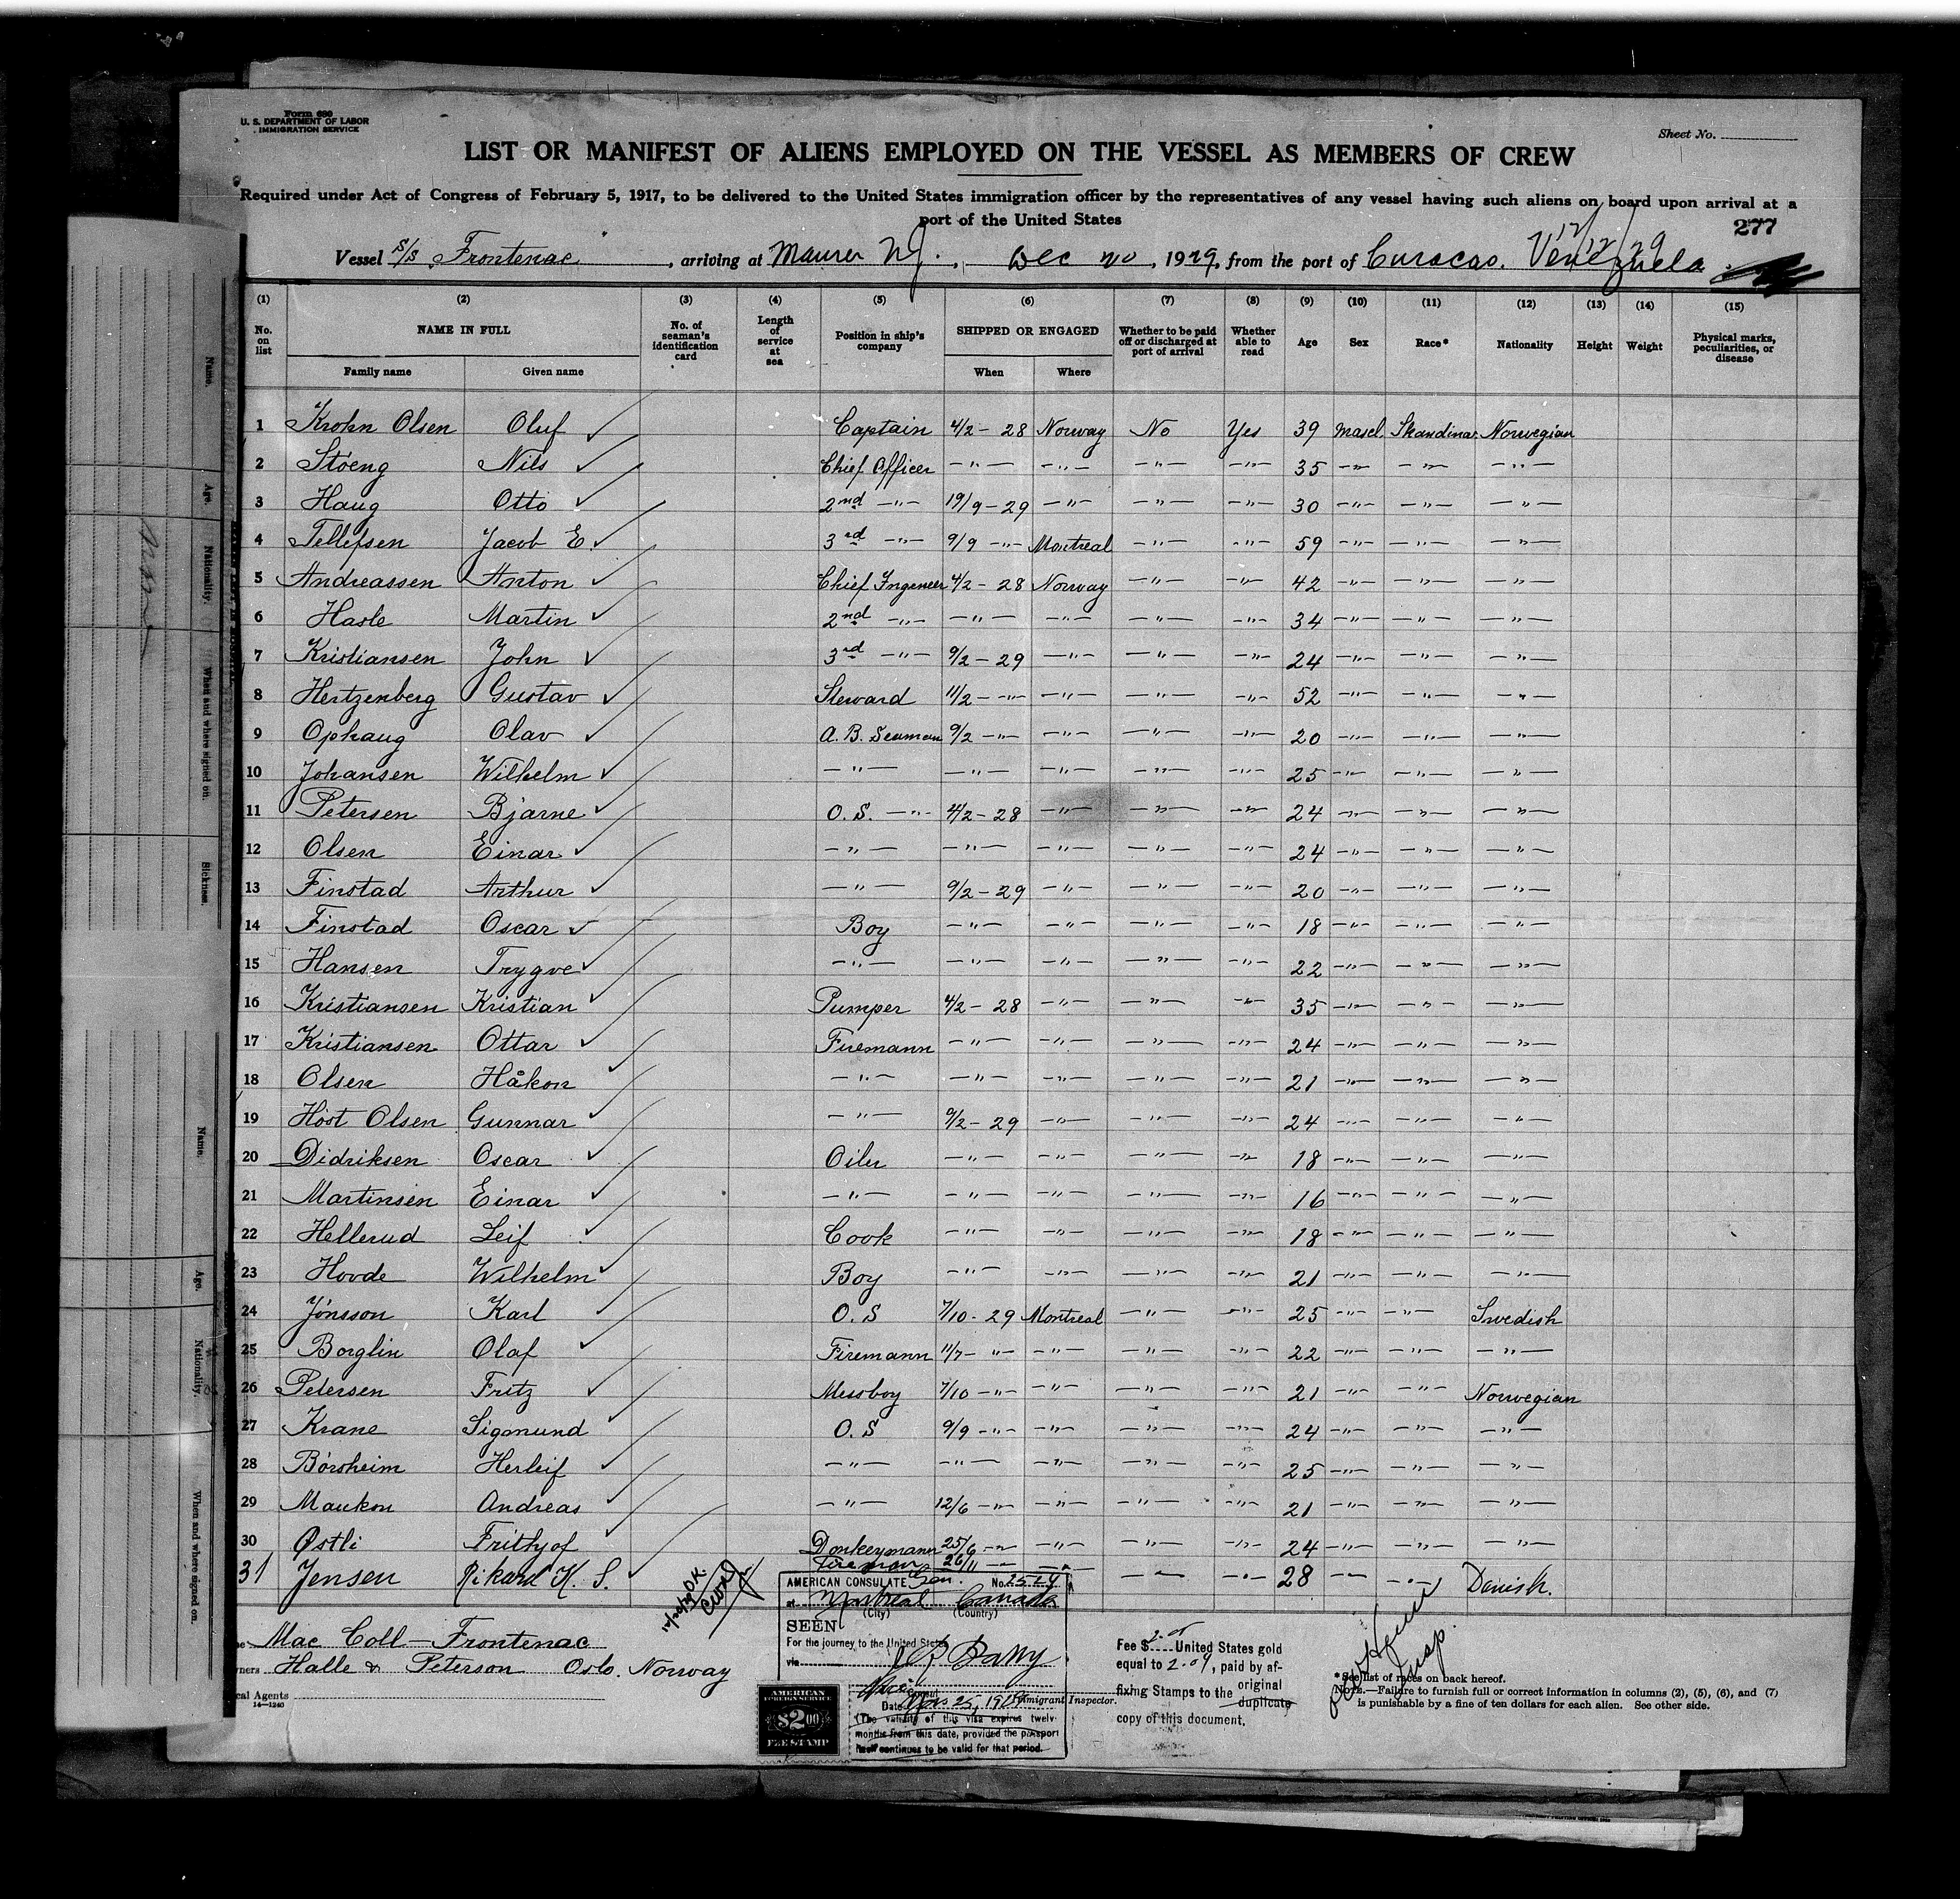 Form 680
U. S. DEPARTMENT OF LABOR
IMMIGRATION SERVICE
Sheet No.
LIST OR MANIFEST OF ALIENS EMPLOYED ON THE VESSEL AS MEMBERS OF CREW
Required under Act of Congress of February 5, 1917, to be delivered to the United States immigration officer by the representatives of any vessel having such aliens on board upon arrival at a
port of the United States
277
12/12/29
Vessel S/S Frontenac, arriving at Maurer N.J., Dec 20, 1929, from the port of Curacao. Venezuela
(1) (2) (3) (4) (5) (6) (7) (8) (9) (10) (11) (12) (13) (14) (15)
No. on list NAME IN FULL Family name Given name No. of seaman's identification card Length of service at sea Position in ship's company SHIPPED OR ENGAGED When Where Whether to be paid off or discharged at port of arrival Whether able to read Age Sex Race* Nationality Height Weight Physical marks, peculiarities, or disease
1 Krohn Olsen Oluf ✓ Captain 4/2-28 Norway No Yes 39 Mascl. Skandinav. Norwegian
2 Støeng Nils ✓ Chief Officer -"- -"- -"- -"- 35 -"- -"- -"-
3 Haug Otto ✓ 2nd -"- 19/9-29 -"- -"- -"- 30 -"- -"- -"-
4 Tellefsen Jacob E. ✓ 3rd -"- 9/9 -"- Montreal -"- -"- 59 -"- -"- -"-
5 Andreassen Anton ✓ Chief Ingeneer 4/2-28 Norway -"- -"- 42 -"- -"- -"-
6 Hasle Martin ✓ 2nd -"- -"- -"- -"- -"- 34 -"- -"- -"-
7 Kristiansen John ✓ 3rd -"- 9/2-29 -"- -"- -"- 24 -"- -"- -"-
8 Hertzenberg Gustav ✓ Steward 11/2 -"- -"- -"- -"- 52 -"- -"- -"-
9 Ophaug Olav ✓ A. B. Seaman 9/2 -"- -"- -"- -"- 20 -"- -"- -"-
10 Johansen Wilhelm ✓ -"- -"- -"- -"- -"- 25 -"- -"- -"-
11 Petersen Bjarne ✓ O. S. -"- 4/2-28 -"- -"- -"- 24 -"- -"- -"-
12 Olsen Einar ✓ -"- -"- -"- -"- -"- 24 -"- -"- -"-
13 Finstad Arthur ✓ -"- 9/2-29 -"- -"- -"- 20 -"- -"- -"-
14 Finstad Oscar ✓ Boy -"- -"- -"- -"- 18 -"- -"- -"-
15 Hansen Trygve ✓ -"- -"- -"- -"- -"- 22 -"- -"- -"-
16 Kristiansen Kristian ✓ Pumper 4/2-28 -"- -"- -"- 35 -"- -"- -"-
17 Kristiansen Ottar ✓ Firemann -"- -"- -"- -"- 24 -"- -"- -"-
18 Olsen Håkon ✓ -"- -"- -"- -"- -"- 21 -"- -"- -"-
19 Høst Olsen Gunnar ✓ -"- 9/2-29 -"- -"- -"- 24 -"- -"- -"-
20 Didriksen Oscar ✓ Oiler -"- -"- -"- -"- 18 -"- -"- -"-
21 Martinsen Einar ✓ -"- -"- -"- -"- -"- 16 -"- -"- -"-
22 Hellerud Leif ✓ Cook -"- -"- -"- -"- 18 -"- -"- -"-
23 Hovde Wilhelm ✓ Boy -"- -"- -"- -"- 21 -"- -"- -"-
24 Jónsson Karl ✓ O. S 7/10-29 Montreal -"- -"- 25 -"- -"- Swedish
25 Borglin Olaf ✓ Firemann 11/7 -"- -"- -"- -"- 22 -"- -"- -"-
26 Petersen Fritz ✓ Messboy 7/10 -"- -"- -"- -"- 21 -"- -"- Norwegian
27 Krane Sigmund ✓ O. S 9/9 -"- -"- -"- -"- 24 -"- -"- -"-
28 Börsheim Herleif ✓ -"- -"- -"- -"- -"- 25 -"- -"- -"-
29 Maukon Andreas ✓ -"- 12/6 -"- -"- -"- -"- 21 -"- -"- -"-
30 Østli Frithyof ✓ Donkeymann 25/6 -"- -"- -"- -"- 24 -"- -"- -"-
31 Jensen Rikard K. S. ✓ Fireman 26/11 -"- -"- -"- -"- 28 -"- -"- Danish.
O.K.
Mac Coll-Frontenac
Halle & Peterson Oslo. Norway
cal Agents
14-1240
AMERICAN CONSULATE Gen. No. 2529
at Montreal Canada
(City) (Country)
SEEN
For the journey to the United States
via
Vice Consul
Date Nov 25, 19
(The validity of this visa expires twelve
months from this date, provided the passport
continues to be valid for that period.
AMERICAN
FOREIGN SERVICE
$2.00
FEE STAMP
Immigrant Inspector.
Fee $ United States gold
equal to 2.09, paid by af-
fixing Stamps to the original
duplicate
copy of this document.
Insp.
*See list of races on back hereof.
NOTE.—Failure to furnish full or correct information in columns (2), (5), (6), and (7)
is punishable by a fine of ten dollars for each alien. See other side.
Name.
Age.
Nationality.
When and where signed on.
Sickness.
Name.
Age.
Nationality.
When and where signed on.